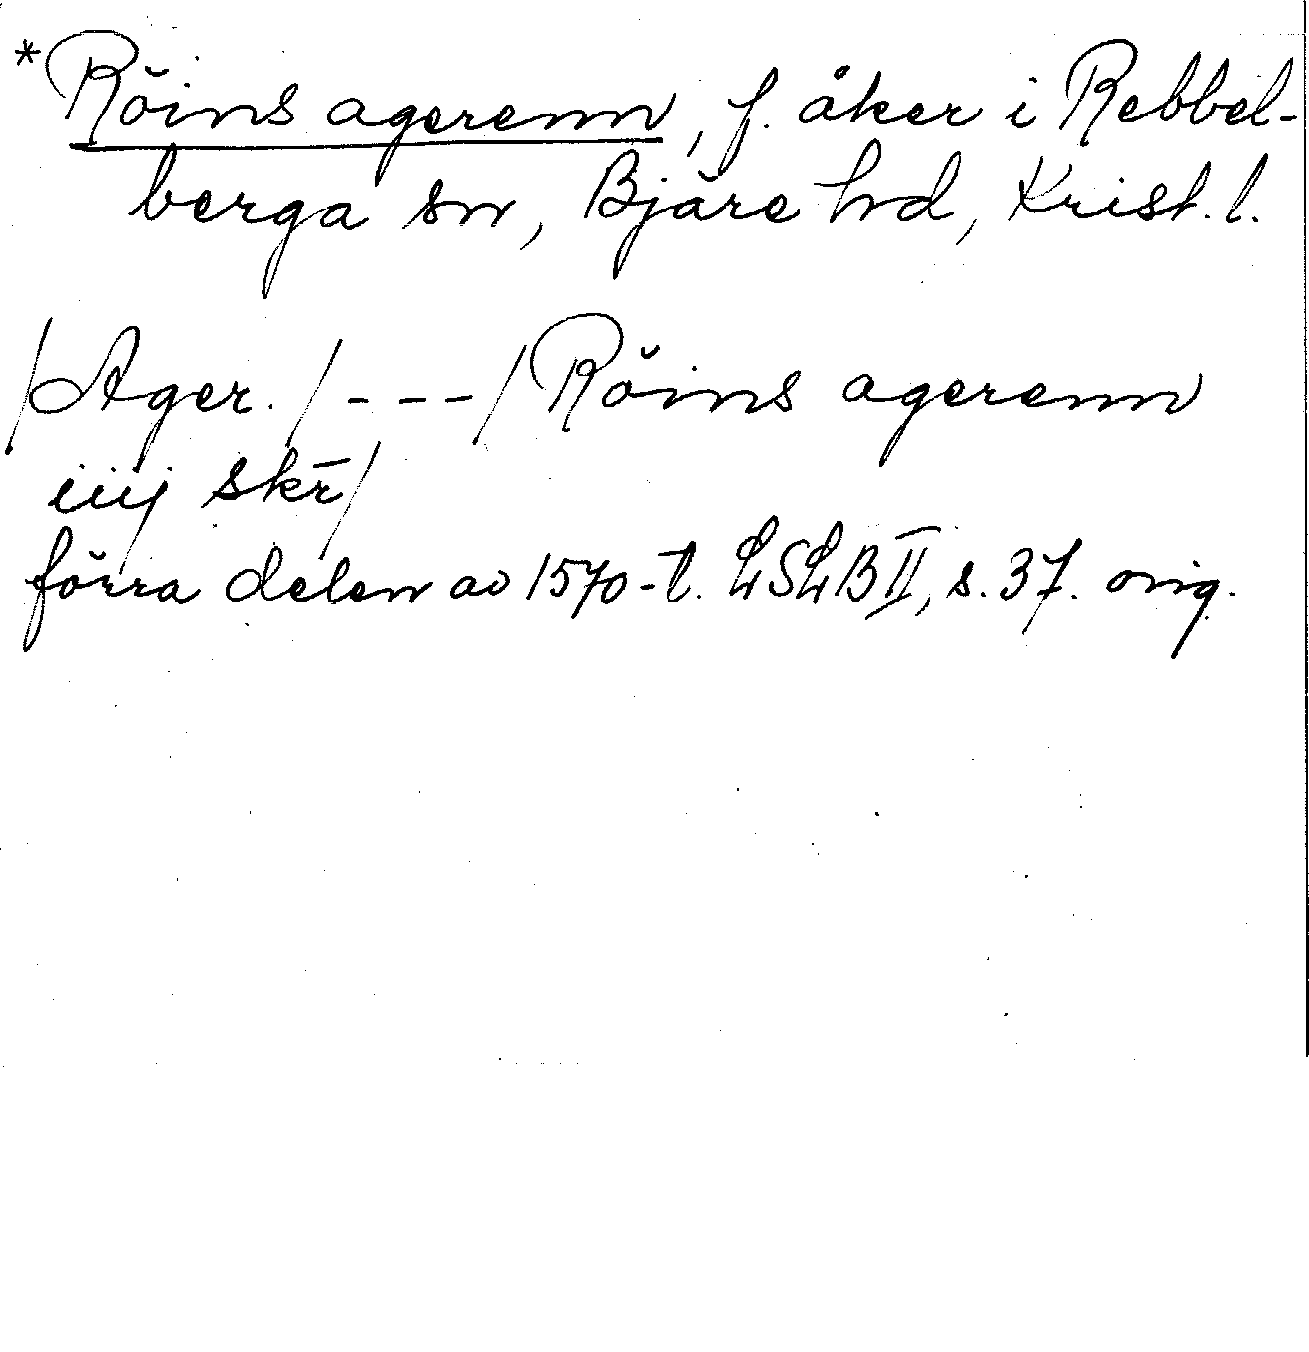 *Röins agerenn, f. åker i Rebbel-
berga sn, Bjäre hd, Krist. l.
/Ager. /---/ Röins agerenn
iiij skr̄/
förra delen av 1570-t. LSLB II, s. 37. orig.